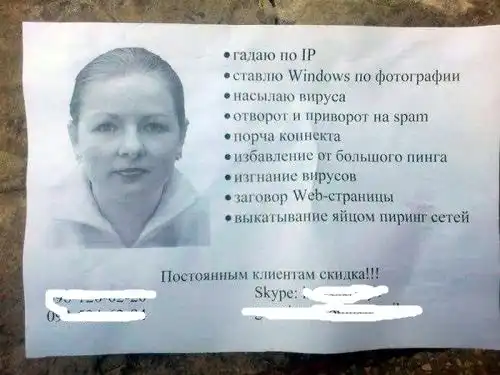 • гадаю по IP
• ставлю Windows по фотографии
• насылаю вируса
• отворот и приворот на spam
• порча коннекта
• избавление от большого пинга
• изгнание вирусов
• заговор Web-страницы
• выкатывание яйцом пиринг сетей
Постоянным клиентам скидка!!!
Skype: